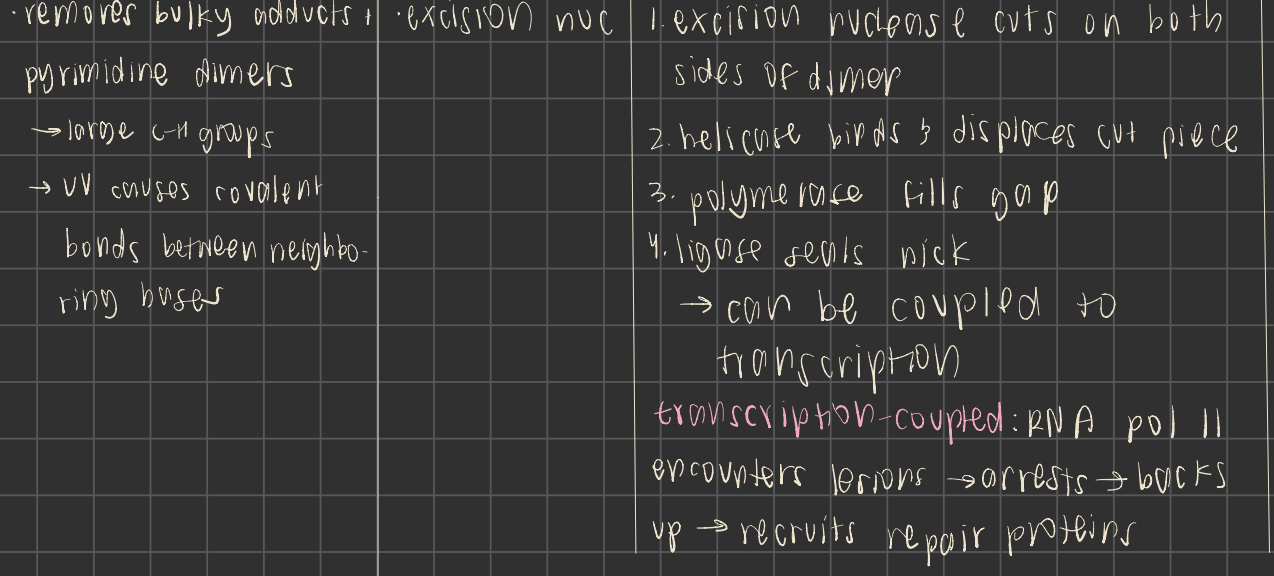 ·removes bulky adducts +
pyrimidine dimers
→ large C-H groups
→ UV causes covalent
bonds between neighbo-
ring bases
·excision nuc
1. excision nuclease cuts on both
sides of dimer
2. helicase binds & displaces cut piece
3. polymerase fills gap
4. ligase seals nick
→ can be coupled to
transcription
transcription-coupled: RNA pol II
encounters lesions → arrests → backs
up → recruits repair proteins